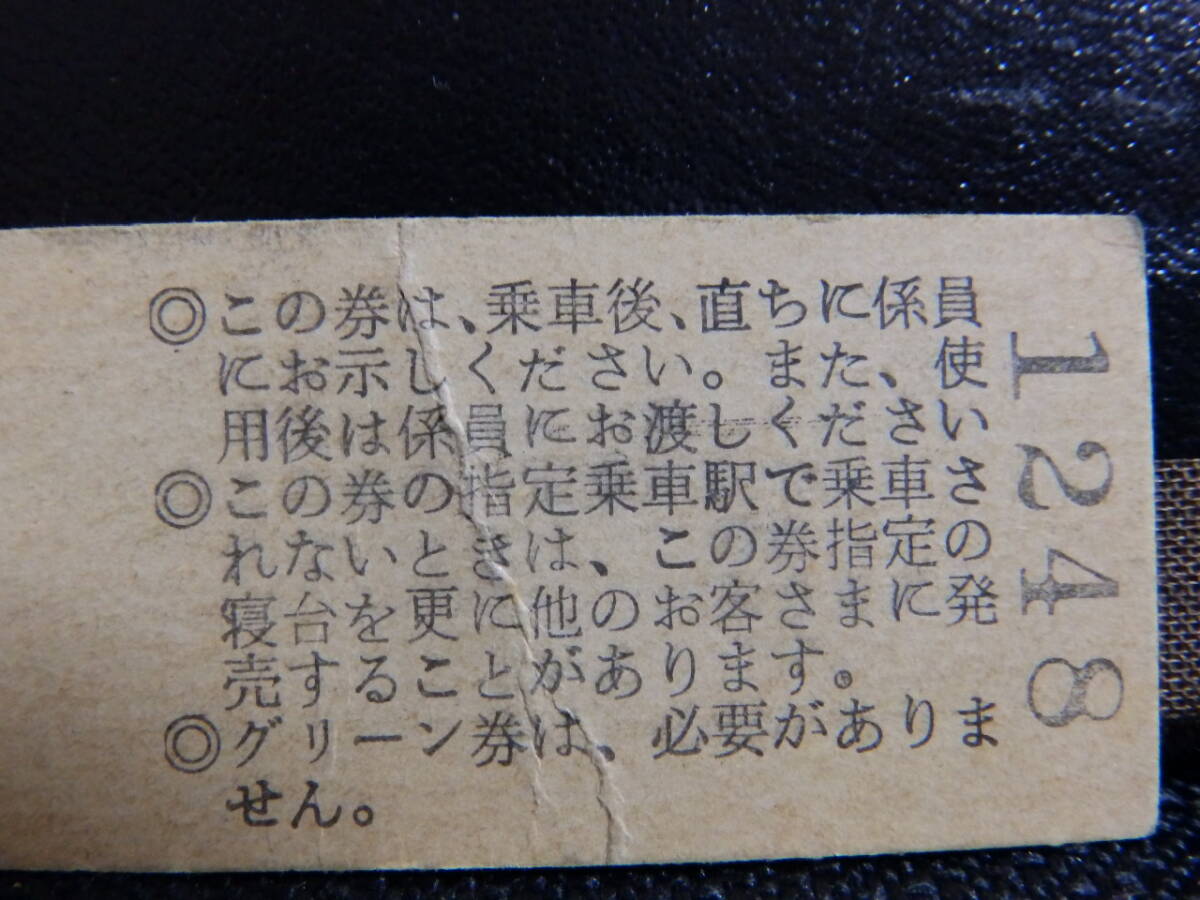 ◎この券は、乗車後、直ちに係員
にお示しください。また、使
用後は係員にお渡しくださいい
◎この券の指定乗車駅で乗車さ
れないときは、この券指定の
寝台を更に他のお客さまに発
売することがあります。
◎グリーン券は、必要がありま
せん。
1248